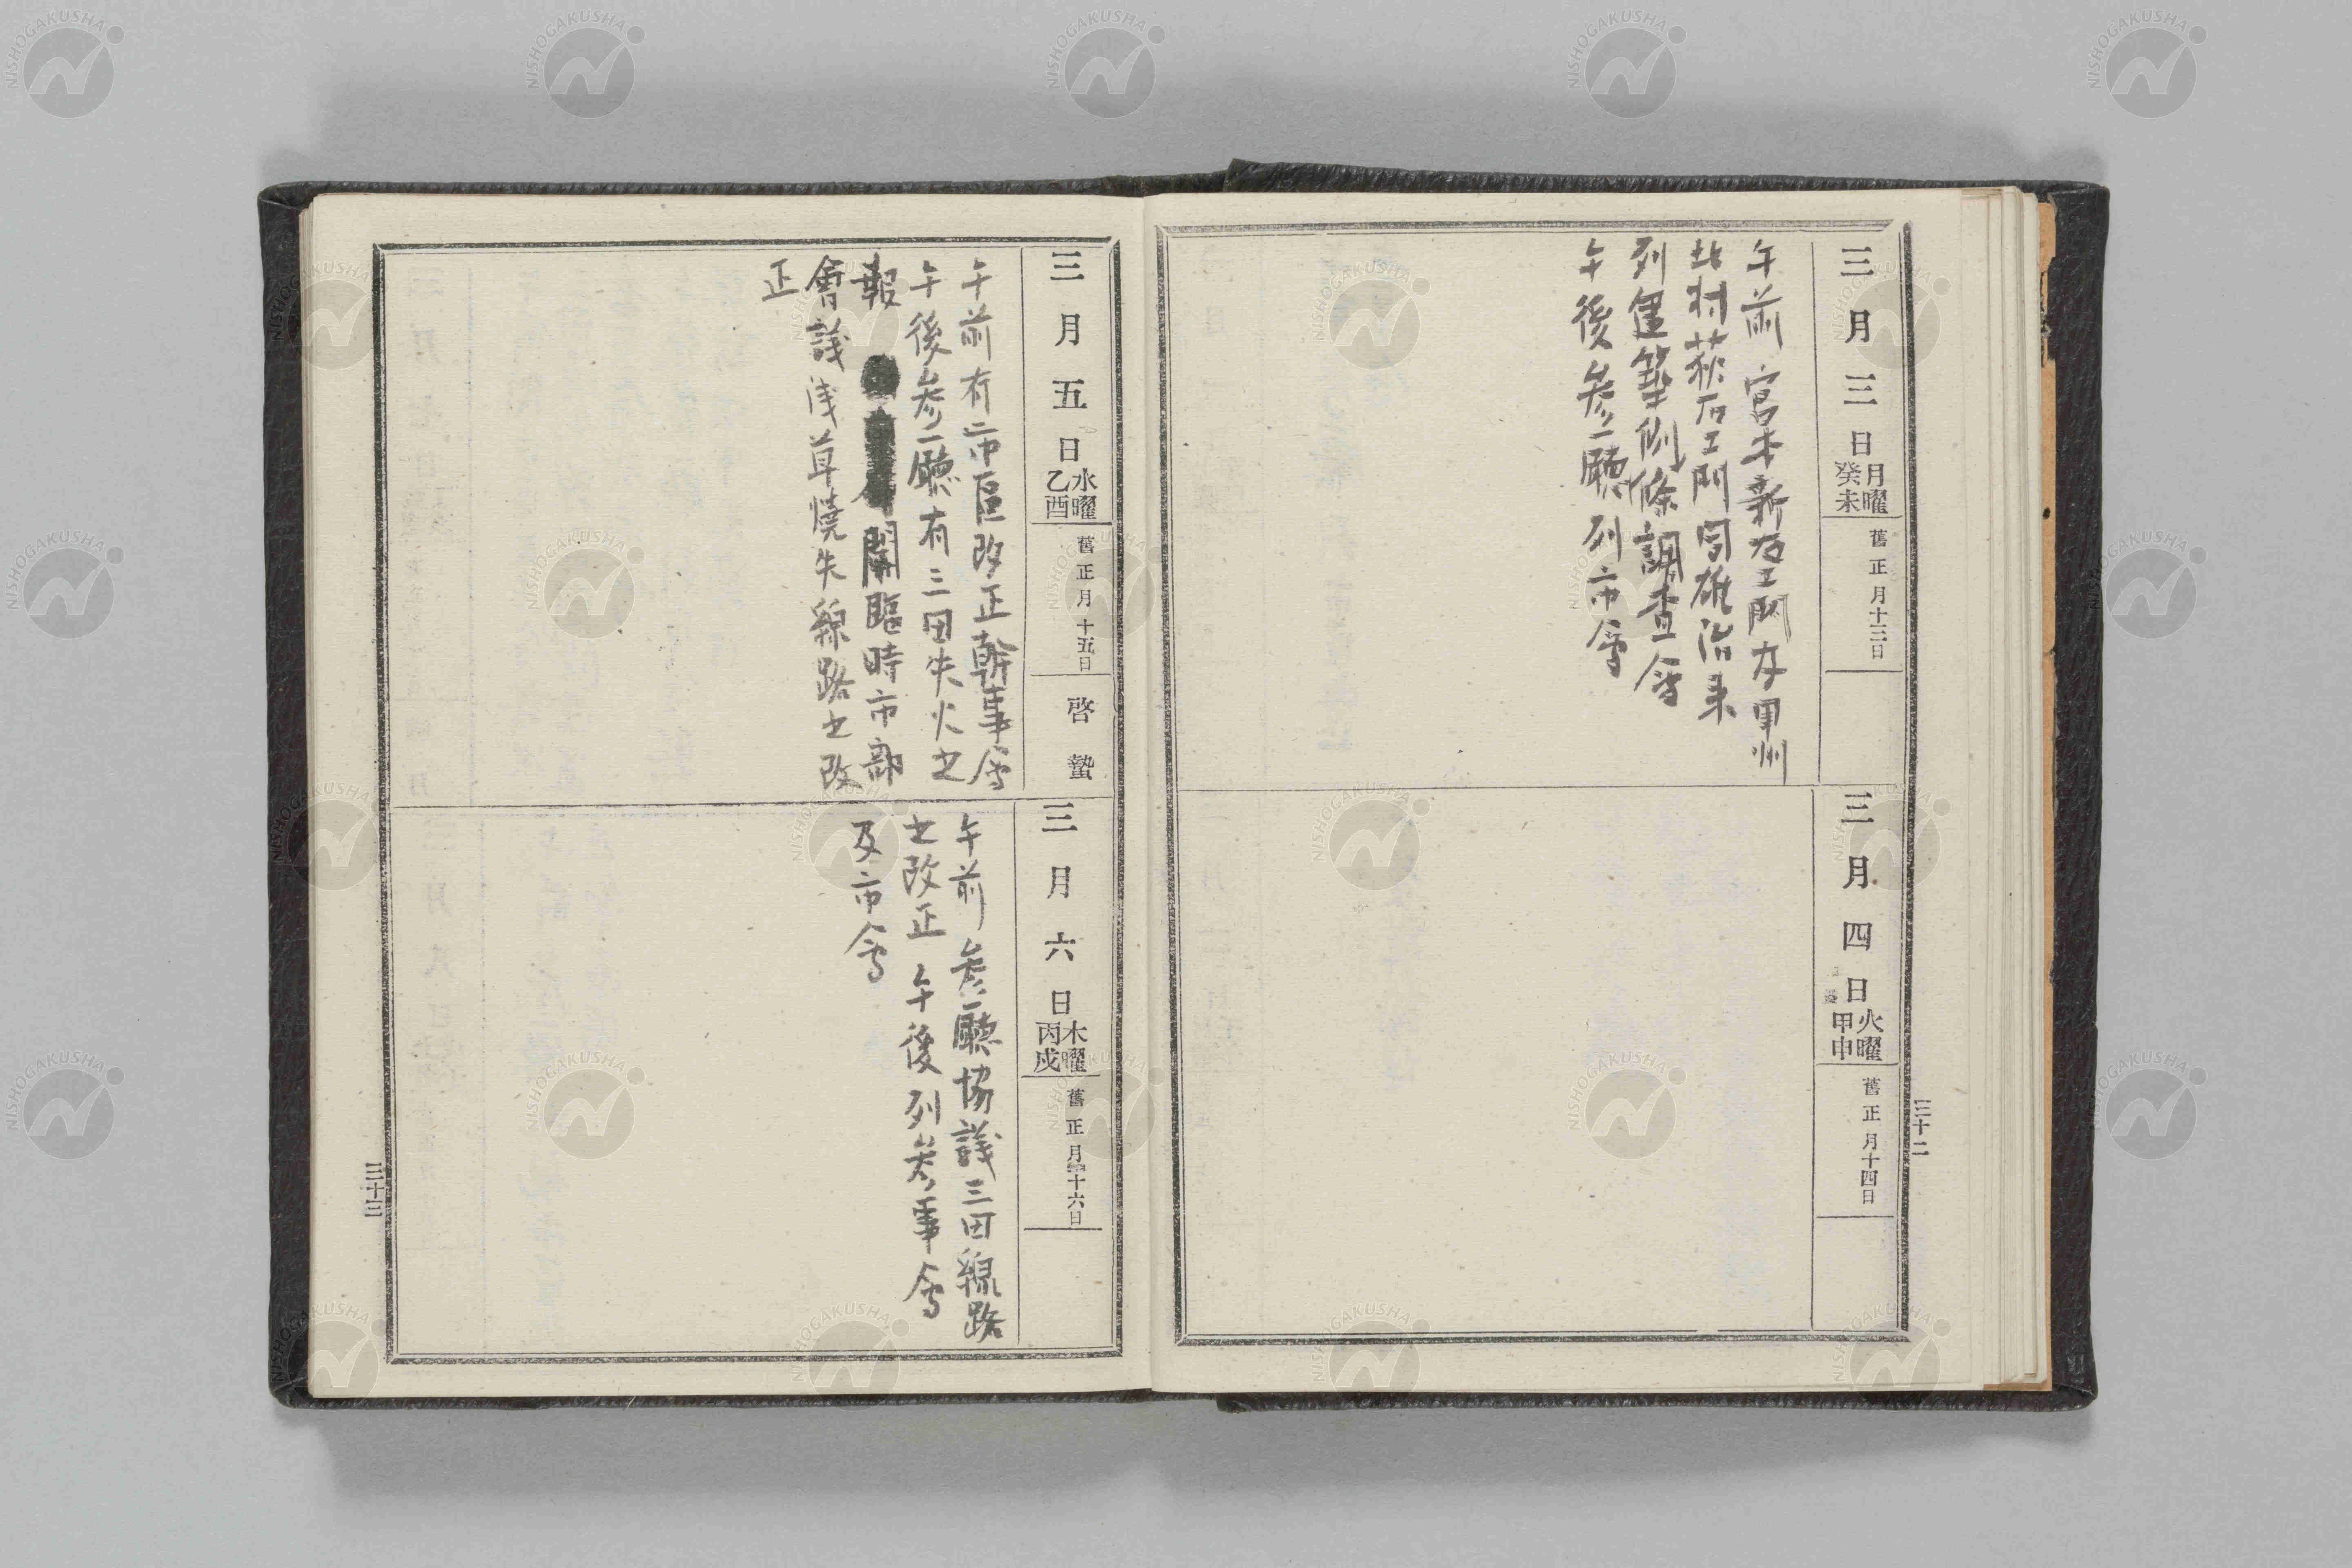 三月三日
月曜
癸未
舊正月十三日
午前 宮本新右エ門友軍州
北村荻右エ門同雄治来
列建築例條調査会
午後参廳列市会
三月四日
火曜
甲申
舊正月十四日
三十二
三月五日
水曜
乙酉
舊正月十五日
啓蟄
午前有市區改正幹事会
午後参廳有三田失火之
報 開臨時市部
會議浅草燒失線路之改
正
三月六日
木曜
丙戌
舊正月十六日
午前参廳協議三田線路
之改正 午後列参事会
及市会
三十三
NISHOGAKUSHA